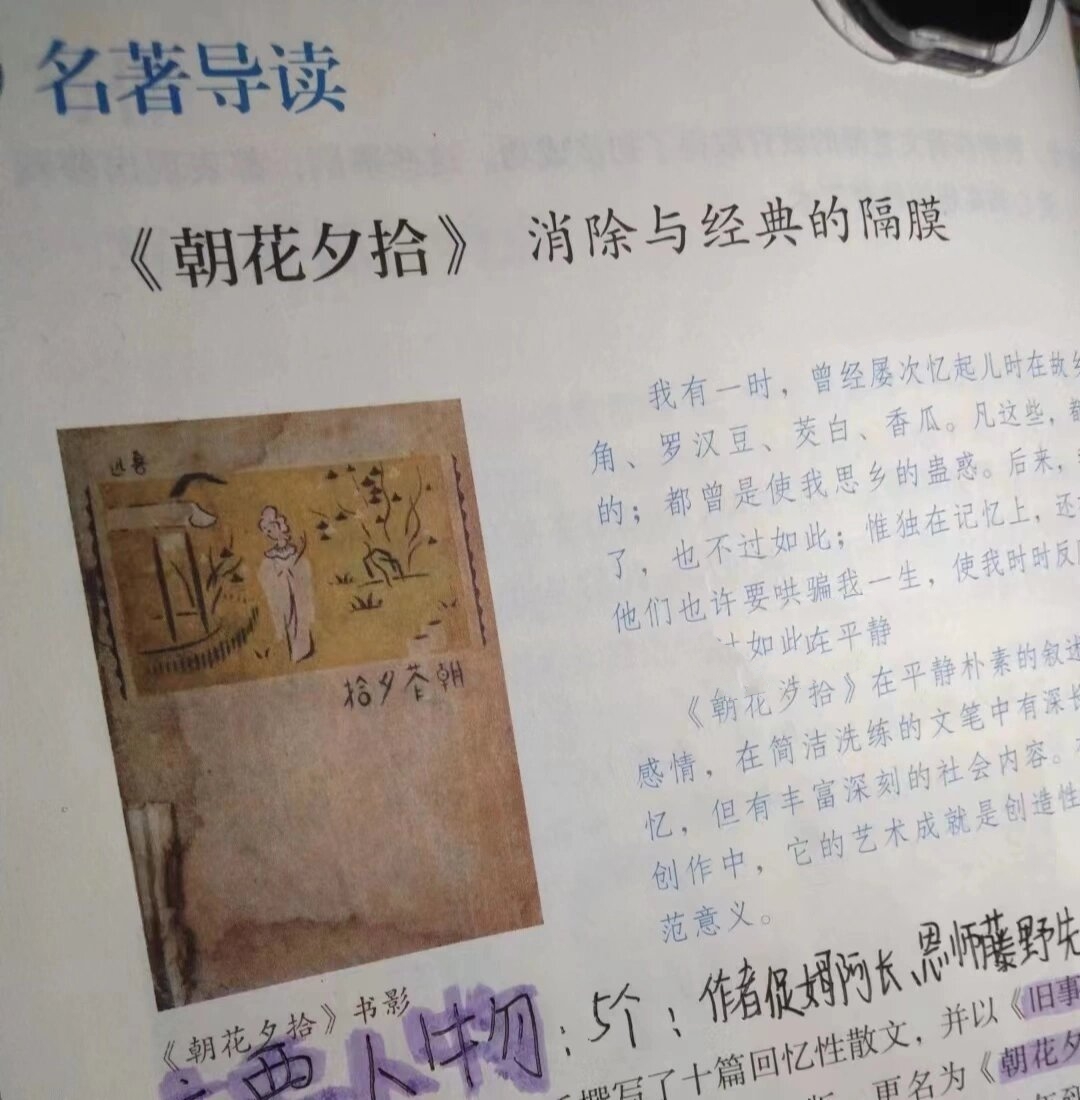 名著导读
《朝花夕拾》 消除与经典的隔膜
我有一时，曾经屡次忆起儿时在故
角、罗汉豆、茭白、香瓜。凡这些，都
的；都曾是使我思乡的蛊惑。后来，
了，也不过如此；惟独在记忆上，还
他们也许要哄骗我一生，使我时时反
如此在平静
《朝花涉拾》在平静朴素的叙述
感情，在简洁洗练的文笔中有深长
忆，但有丰富深刻的社会内容。
创作中，它的艺术成就是创造性
范意义。
拾夕花朝
《朝花夕拾》书影
：5个：作者保姆阿长、恩师藤野先
撰写了十篇回忆性散文，并以《旧事
更名为《朝花夕